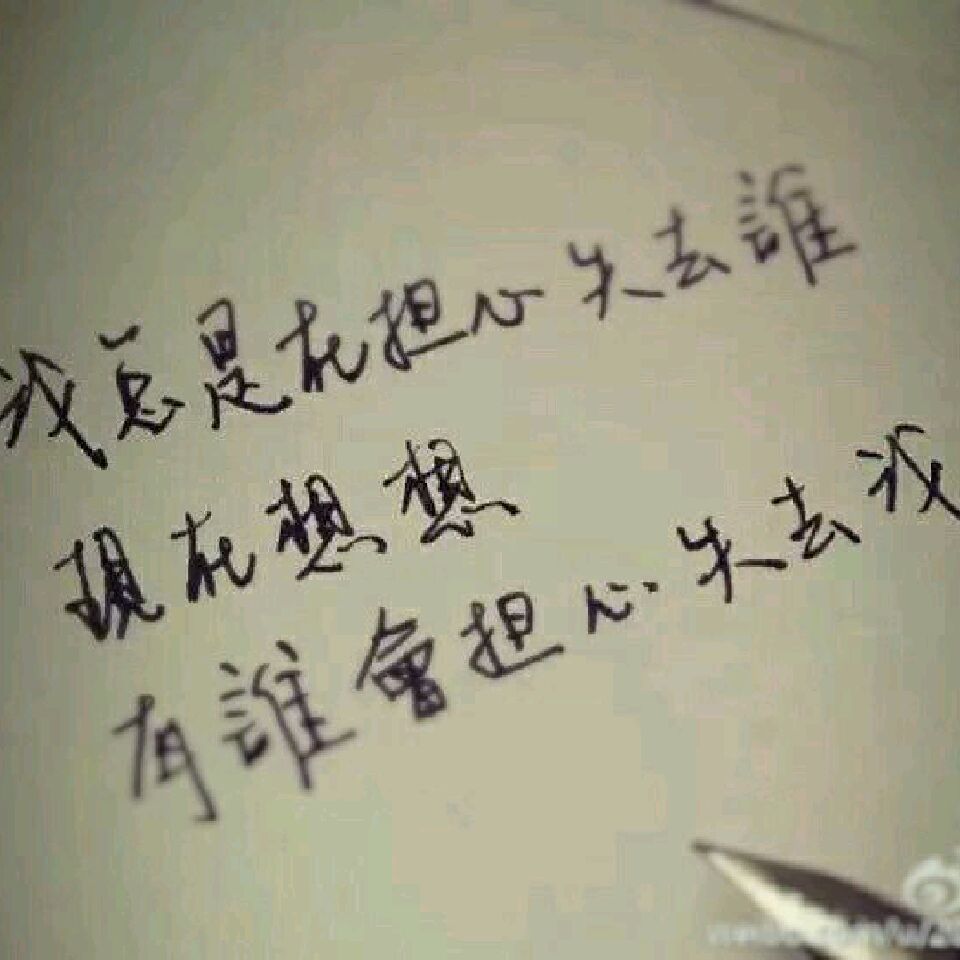 我总是在担心失去誰
現在想想
有誰會担心失去我